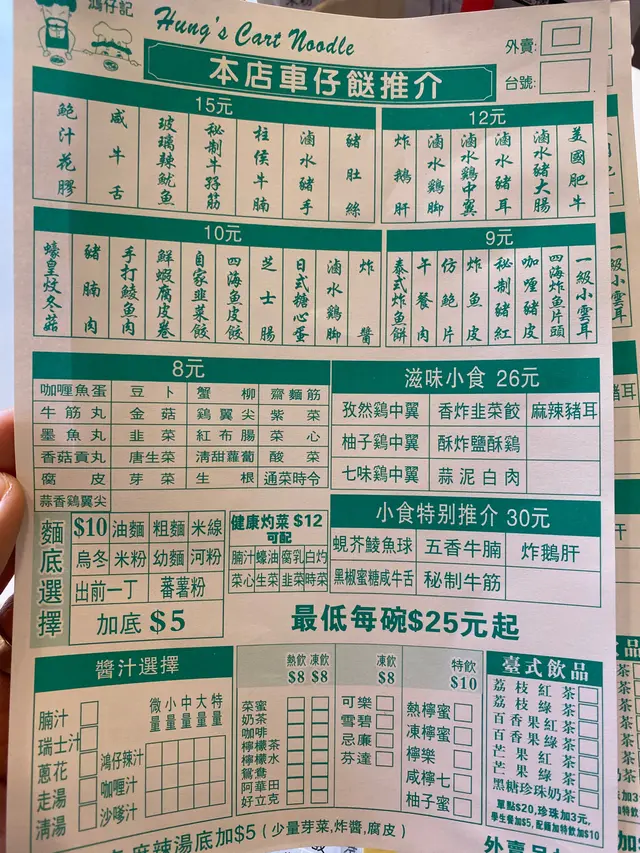 鴻仔記
Hung's Cart Noodle
外賣:
台號:
本店車仔餸推介
15元
鮑汁花膠
咸牛舌
玻璃辣魷魚
秘制牛孖筋
柱侯牛腩
滷水豬手
豬肚絲
12元
炸鵝肝
滷水鷄脚
滷水鷄中翼
滷水豬耳
滷水豬大腸
美國肥牛
10元
蠔皇炆冬菇
豬腩肉
手打鯪魚肉
鮮蝦腐皮卷
自家韭菜餃
四海魚皮餃
芝士腸
日式糖心蛋
滷水鷄脚
炸醬
9元
泰式炸魚餅
午餐肉
仿鮑片
炸魚皮
秘制豬紅
咖喱豬皮
四海炸魚片頭
一級小雲耳
8元
咖喱魚蛋 豆卜 蟹柳 齋麵筋
牛筋丸 金菇 鷄翼尖 紫菜
墨魚丸 韭菜 紅布腸 菜心
香菇貢丸 唐生菜 淸甜蘿蔔 酸菜
腐皮 芽菜 生根 通菜時令
蒜香鷄翼尖
滋味小食 26元
孜然鷄中翼 香炸韭菜餃 麻辣豬耳
柚子鷄中翼 酥炸鹽酥鷄
七味鷄中翼 蒜泥白肉
小食特别推介 30元
蜆芥鯪魚球 五香牛腩 炸鵝肝
黑椒蜜糖咸牛舌 秘制牛筋
麵底選擇
$10 油麵 粗麵 米線
烏冬 米粉 幼麵 河粉
出前一丁 蕃薯粉
加底 $5
健康灼菜 $12
可配
腩汁 蠔油 腐乳 白灼
菜心 生菜 韭菜 時菜
最低每碗$25元起
醬汁選擇
腩汁
瑞士汁
蔥花
走湯
淸湯
微量 小量 中量 大量 特量
鴻仔辣汁
咖喱汁
沙嗲汁
熱飲 $8 凍飲 $8
菜蜜
奶茶
咖啡
檸檬茶
檸檬水
鴛鴦
阿華田
好立克
凍飲 $8
可樂
雪碧
忌廉
芬達
特飲 $10
熱檸蜜
凍檸蜜
檸樂
咸檸七
柚子蜜
臺式飲品
荔枝紅茶
荔枝綠茶
百香果紅茶
百香果綠茶
芒果紅茶
芒果綠茶
黑糖珍珠奶茶
單點$20,珍珠加3元,
學生餐加$5,配麵加特飲加$10
麻辣湯底加$5(少量芽菜,炸醬,腐皮)